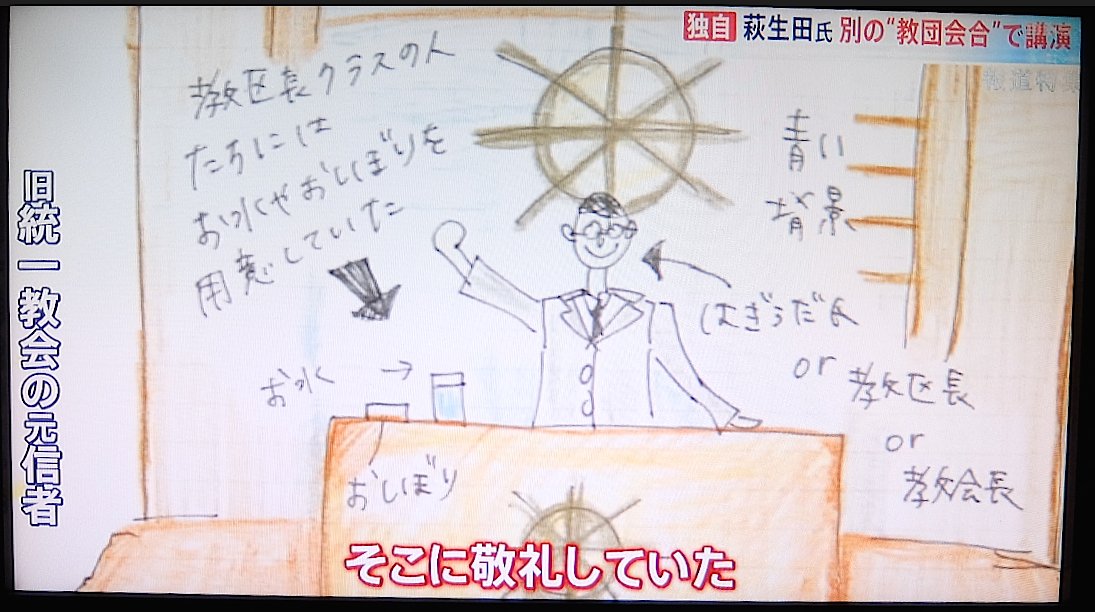 独自 萩生田氏 別の“教団会合”で講演
報道特集
旧統一教会の元信者
教区長クラスの人
たちには
お水やおしぼりを
用意していた
青い
背景
はぎうだ氏
or 教区長
or
教会長
お水 →
おしぼり
そこに敬礼していた